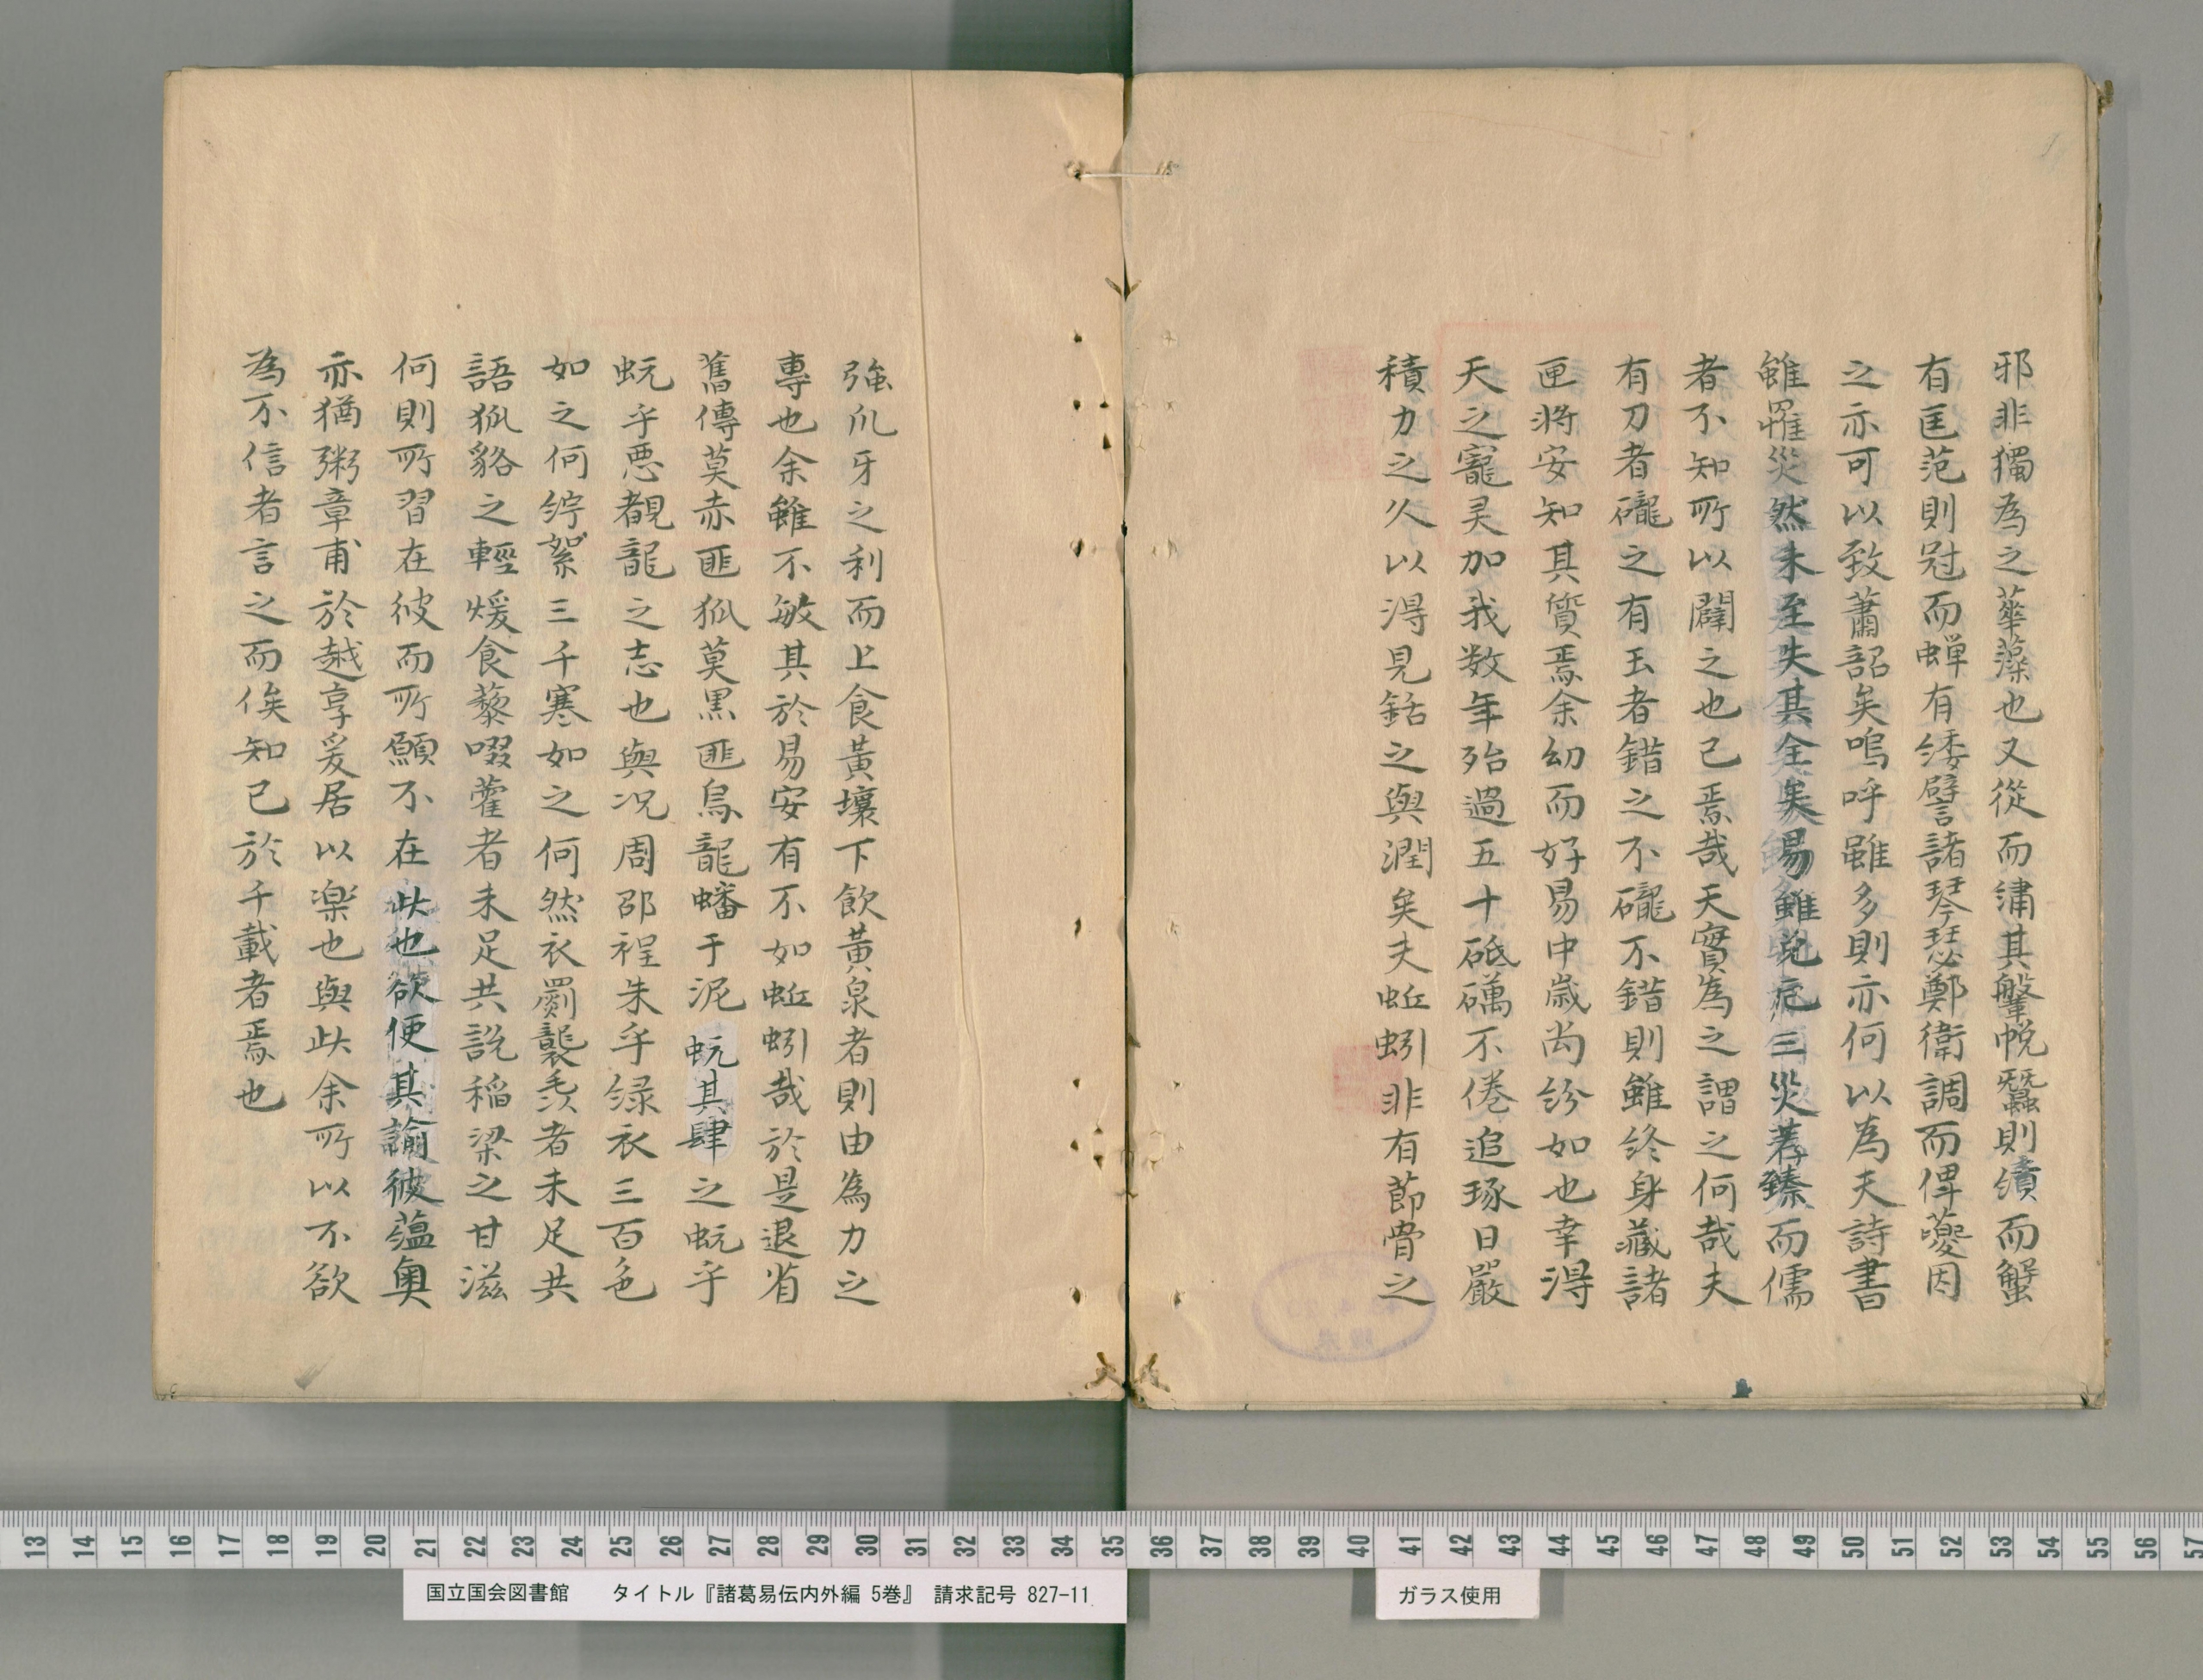 邪非獨為之華藻也又從而繡其鞶帨蠶則績而蟹
有匡范則冠而蟬有緌譬諸琴瑟鄭衛調而俾夔因
之亦可以致蕭韶矣嗚呼雖多則亦何以為夫詩書
雖罹災然未至失其全矣易雖免厄三災荐臻而儒
者不知所以闢之也已焉哉天實為之謂之何哉夫
有刀者礲之有玉者錯之不礲不錯則雖終身藏諸
匣將安知其質焉余幼而好易中歳尚紛如也幸得
天之寵灵加我数年殆過五十砥礪不倦追琢日嚴
積力之久以得見銛之與潤矣夫蚯蚓非有筋骨之
強爪牙之利而上食黃壤下飲黃泉者則由為力之
專也余雖不敏其於易安有不如蚯蚓哉於是退省
舊傳莫赤匪狐莫黒匪烏龍蟠于泥蚖其肆之蚖乎
蚖乎悪覩龍之志也與況周邵裎朱乎緑衣三百色
如之何紵絮三千寒如之何然衣罽襲毳者未足共
語狐貉之輕煖食藜啜藿者未足共説稲梁之甘滋
何則所習在彼而所願不在此也欲使其諭彼蘊奥
亦猶粥章甫於越享爰居以楽也與此余所以不欲
為不信者言之而俟知己於千載者焉也
国立国会図書館 タイトル『諸葛易伝内外編 5巻』 請求記号 827-11
ガラス使用
13 14 15 16 17 18 19 20 21 22 23 24 25 26 27 28 29 30 31 32 33 34 35 36 37 38 39 40 41 42 43 44 45 46 47 48 49 50 51 52 53 54 55 56 57